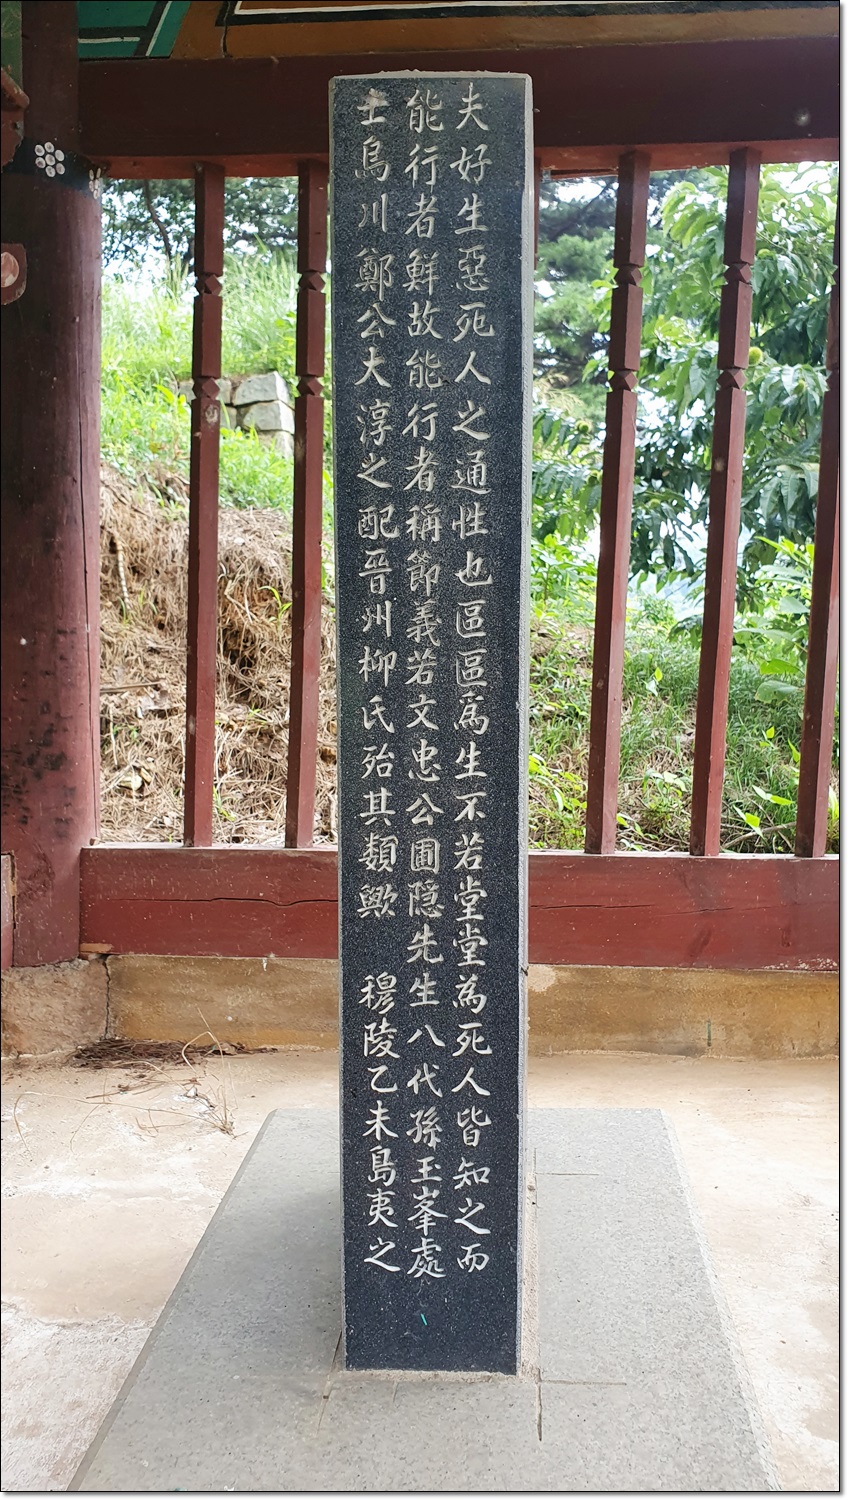 夫好生惡死人之通性也區區爲生不若堂堂為死人皆知之而
能行者鮮故能行者稱節義若文忠公圃隐先生八代孫玉峯處
士烏川鄭公大淳之配晉州柳氏殆其類歟 穆陵乙未島夷之